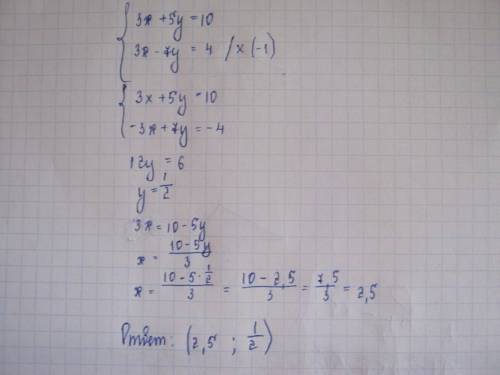 3x + 5y = 10
3x - 7y = 4 /x (-1)
3x + 5y = 10
-3x + 7y = -4
12y = 6
y = 1/2
3x = 10 - 5y
x = (10 - 5y)/3
x = (10 - 5 · 1/2)/3 = (10 - 2,5)/3 = 7,5/3 = 2,5
Ответ: (2,5 ; 1/2)